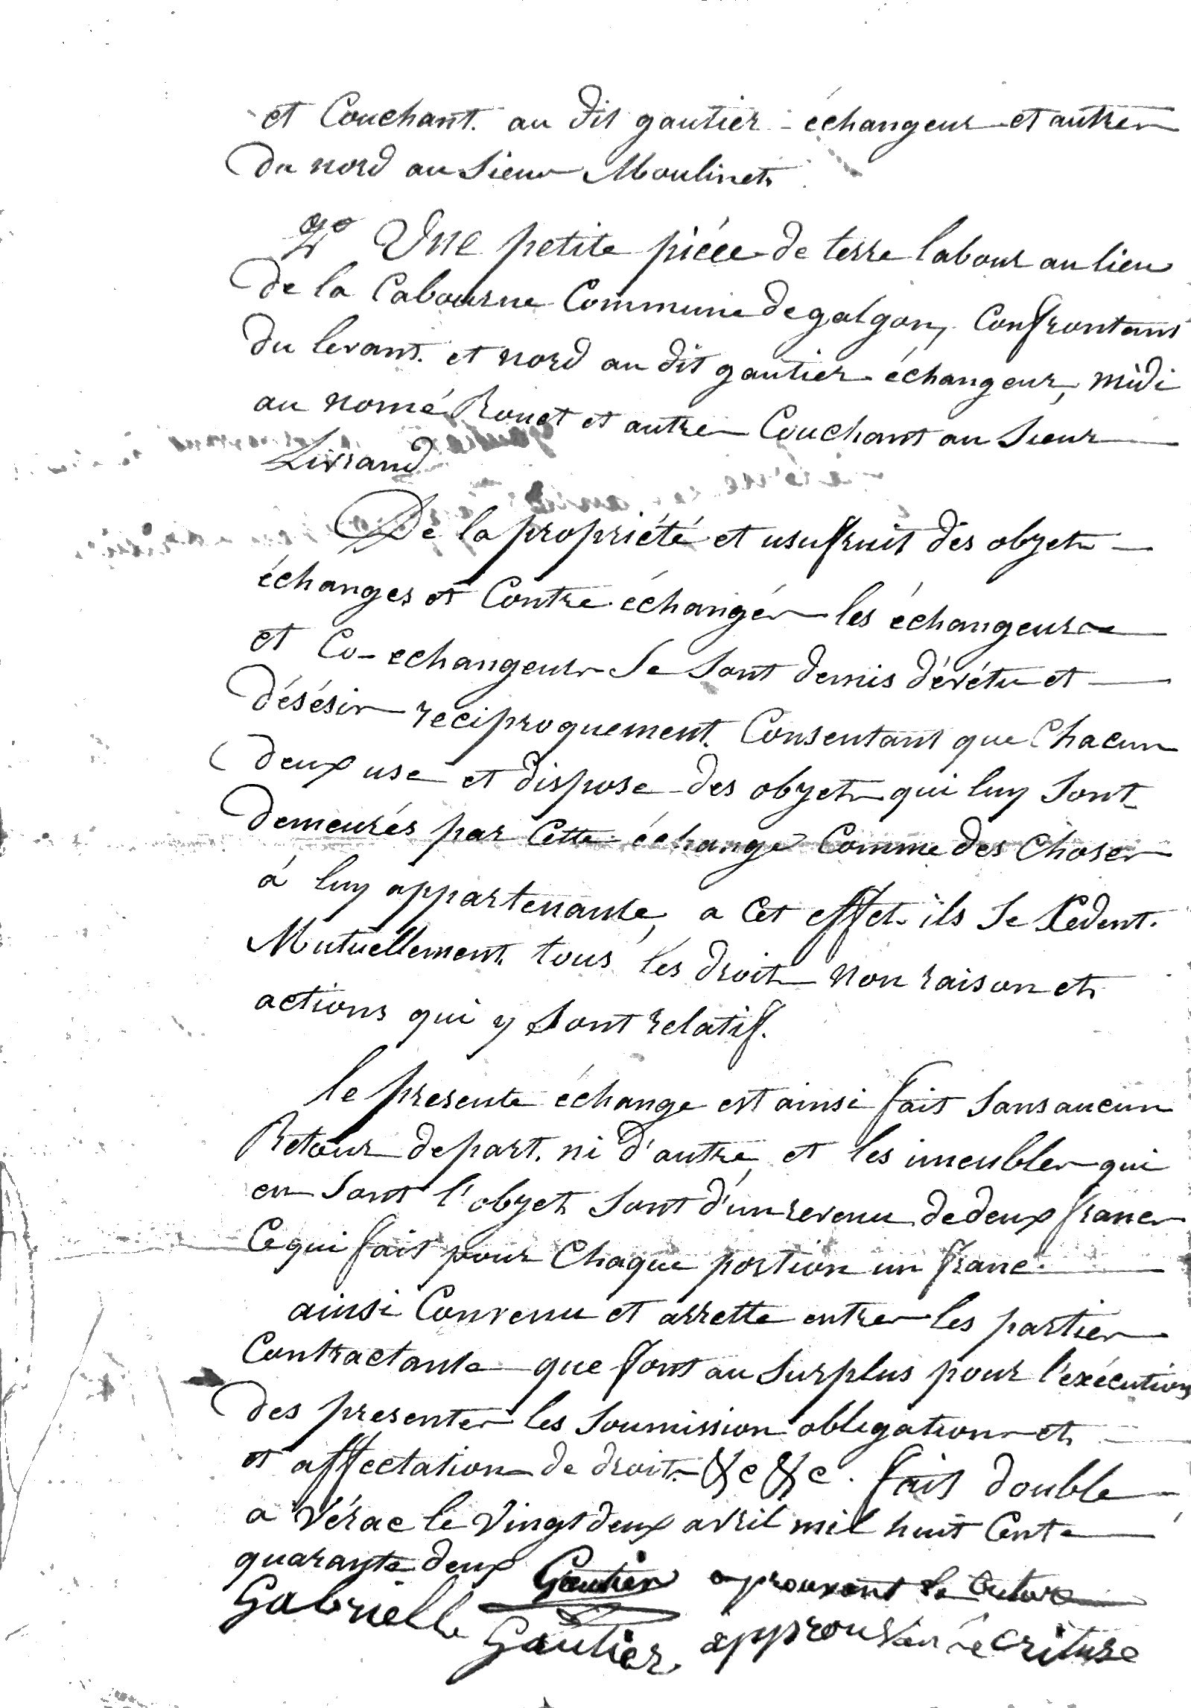 et Couchant. au dit gautier échangeur et autres
du nord au Sieur Moulinet
2º Une petite piéce de terre labour au lieu
de la Cabourne Commune de galgon, Confrontant
du levant. et nord au dit gautier échangeur, midi
au nomé Rouet et autres Couchant au Sieur
Livrand
De la propriété et usufruit des objets
échanges et Contre échangés les échangeurs
et Co-echangeurs Se Sont demis dévétu et
désésir reciproquement. Consentant que Chacun
deux use et dispose des objets qui luy Sont
demeurés par Cette échange Comme des Choses
á luy appartenante, a Cet effet ils Se Cédent.
Mutuellement tous les droits non raison et
actions qui y Sont relatif.
le presente échange est ainsi fait Sans aucun
Retour de part. ni d'autre, et les imeubles qui
en Sont l'objet Sont d'un revenu de deux francs
Ce qui fait pour Chaque portion un franc.
ainsi Convenu et arrette entres les parties
Contractante que font au Surplus pour l'exécution
des presentes les Soumission obligations et
et affectations de droits &c &c. fait double
a Vérac le Vingt deux avril mil huit Cent
quarante deux Gautier aprouvent le criture
Gabrielle Gautier, approuvan l'ecriture